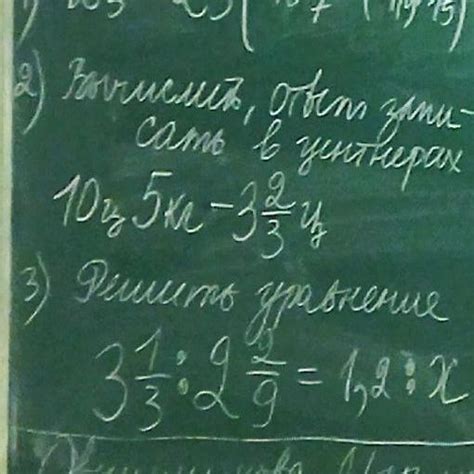 2) Вычислить, ответ запи-
сать в центнерах
10ц 5кг - 3 2/3 ц
3) Решить уравнение
3 1/3 : 2 2/9 = 1,2 : x